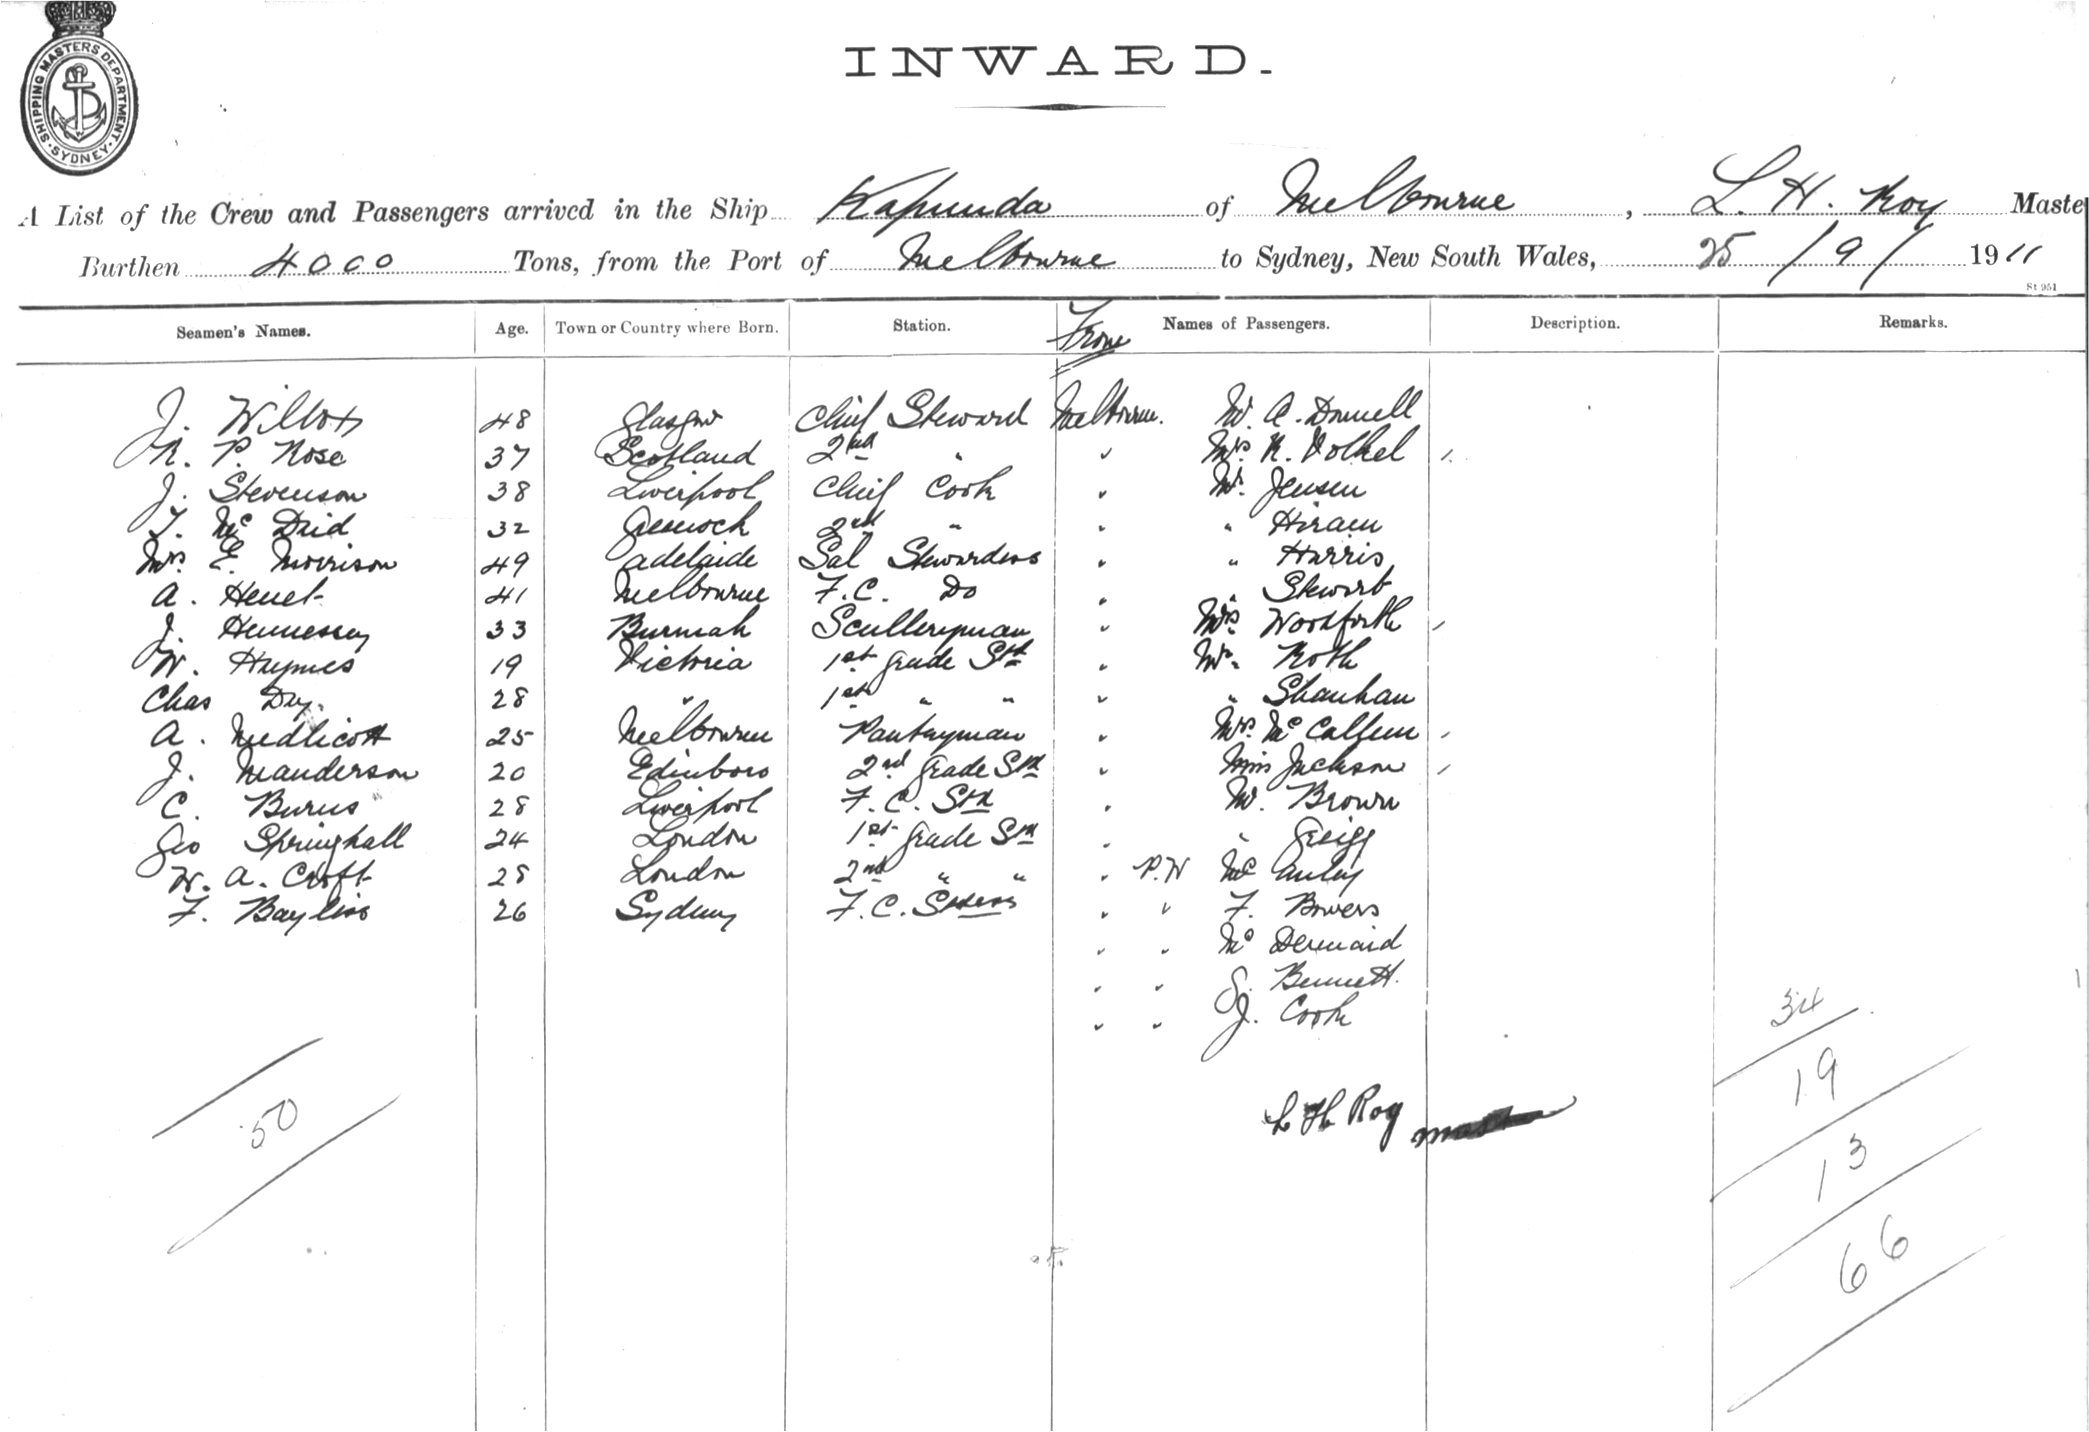 SHIPPING MASTERS DEPARTMENT
SYDNEY
INWARD.
A List of the Crew and Passengers arrived in the Ship Kapunda of Melbourne, L. H. Roy Maste
Burthen 4000 Tons, from the Port of Melbourne to Sydney, New South Wales, 25/9/1911
St 951
Seamen's Names. Age. Town or Country where Born. Station. From Names of Passengers. Description. Remarks.
J. 48 Glasgow Chief Steward Melbourne. Mr. A. Donnell
R. P. Rose 37 Scotland 2nd " " Mrs. K. Volkel
J. Stevenson 38 Liverpool Chief Cook " Mr. Jensen
T. Mc Daid 32 Greenock 2nd " " " Hiram
Mrs. E. Morrison 49 Adelaide Sal Stewardess " " Harris
A. 41 Melbourne F.C. Do " " Stewart
J. Hennessey 33 Burmah Sculleryman " Mrs. Woodforth
W. Haymes 19 Victoria 1st grade Std " Mr. Roth
Chas Day. 28 " 1st " " " " Shanhan
A. Medlicott 25 Melbourne Pantryman " Mrs. Mc Callum
J. Manderson 20 Edinboro 2nd grade Std " Miss Jackson
C. Burns 28 Liverpool F.C. Std " Mr. Brown
Geo Springhall 24 London 1st grade Std " " Greigg
W. A. Croft 28 London 2nd " " " P.W Mc Auley
F. Bayliss 26 Sydney F.C. " " F. Bowers
" " Mc Dermaid
" " J. Bennett.
" " J. Cook
34
19
L H Roy master
50
13
66